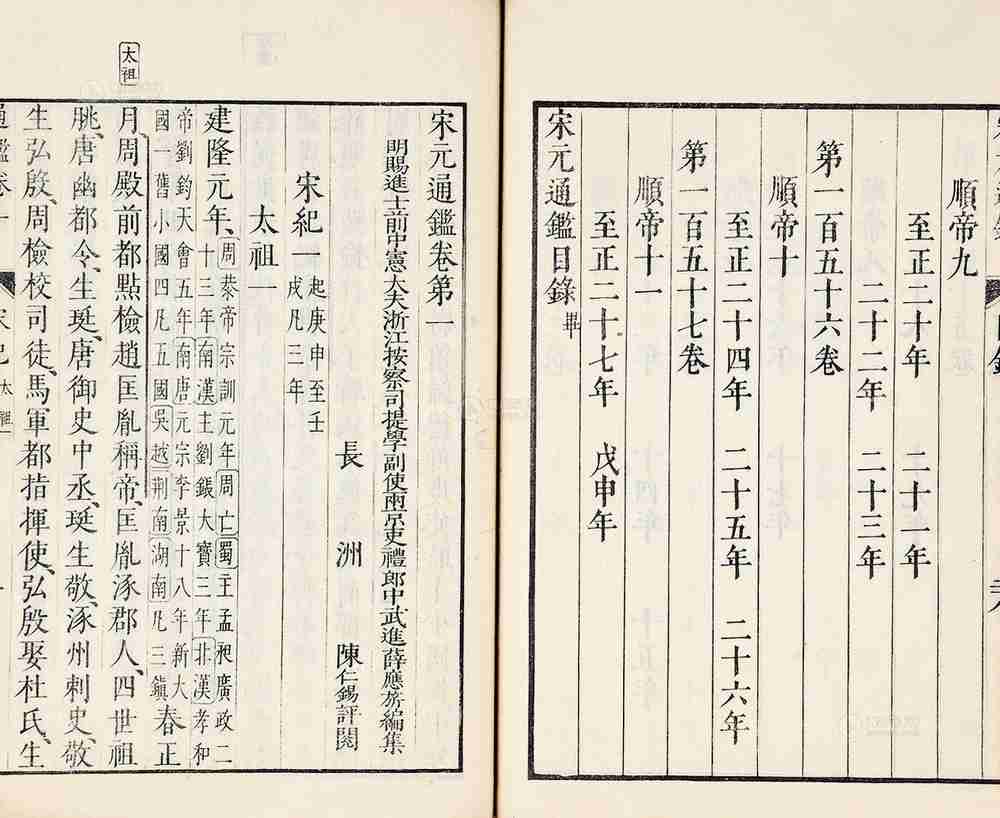 順帝九
至正二十年　二十一年
二十二年　二十三年
第一百五十六卷
順帝十
至正二十四年　二十五年　二十六年
第一百五十七卷
順帝十一
至正二十七年　戊申年
宋元通鑑目錄畢
宋元通鑑卷第一
明賜進士前中憲大夫浙江按察司提學副使兩京吏禮郎中武進薛應旂編集
長洲　陳仁錫評閱
宋紀一起庚申至壬戌凡三年
太祖一
太祖
建隆元年、周恭帝宗訓元年周亡蜀主孟昶廣政二十三年南漢主劉鋹大寶三年北漢孝和
帝劉鈞天會五年南唐元宗李景十八年新大國一舊小國四凡五國吳越荆南湖南凡三鎮春正
月、周殿前都點檢趙匡胤稱帝、匡胤涿郡人、四世祖
朓、唐幽都令、生珽、唐御史中丞、珽生敬、涿州刺史、敬
生弘殷、周檢校司徒、馬軍都指揮使、弘殷娶杜氏、生